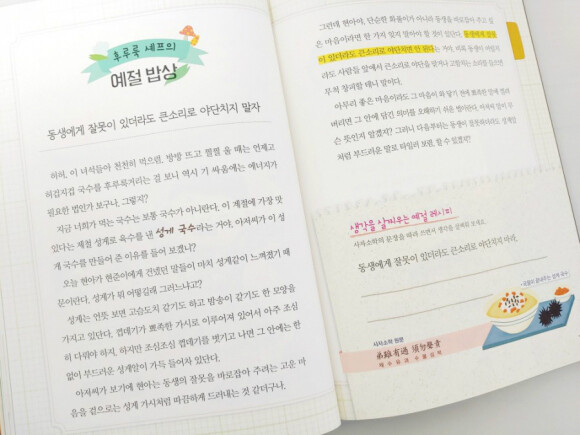 후루룩 셰프의
예절 밥상
동생에게 잘못이 있더라도 큰소리로 야단치지 말자
허허, 이 녀석들아 천천히 먹으렴. 방방 뜨고 펄펄 울 때는 언제고
허겁지겁 국수를 후루룩거리는 걸 보니 역시 기 싸움에는 에너지가
필요한 법인가 보구나, 그렇지?
지금 너희가 먹는 국수는 보통 국수가 아니란다. 이 계절에 가장 맛
있다는 제철 성게로 육수를 낸 성게 국수라는 거야. 아저씨가 이 성
게 국수를 만들어 준 이유를 들어 보겠니?
오늘 현아가 현준이에게 건넸던 말들이 마치 성게같이 느껴졌기 때
문이란다. 성게가 뭐 어떻길래 그러느냐고?
성게는 언뜻 보면 고슴도치 같기도 하고 밤송이 같기도 한 모양을
가지고 있단다. 껍데기가 뾰족한 가시로 이루어져 있어서 아주 조심
히 다뤄야 하지. 하지만 조심조심 껍데기를 벗기고 나면 그 안에는 한
없이 부드러운 성게알이 가득 들어차 있단다.
아저씨가 보기에 현아는 동생의 잘못을 바로잡아 주려는 고운 마
음을 겉으로는 성게 가시처럼 따끔하게 드러내는 것 같더구나.
그런데 현아야, 단순한 화풀이가 아니라 동생을 바로잡아 주고 싶
은 마음이라면 한 가지 잊지 말아야 할 점이 있단다. 동생에게 잘못
이 있더라도 큰소리로 야단치면 안 된다는
라도 사람들 앞에서 큰소리로 야단을 맞거나 고함치는 소리를 들으면
무척 창피할 테니 말이다.
아무리 좋은 마음이라도 그 마음이 와 닿기 전에 뾰족한 말에 찔려
버리면 그 안에 담긴 의미를 오해하기 쉬운 법이란다. 아저씨 말이 무
슨 뜻인지 알겠지? 그러니 다음부터는 동생이 잘못하더라도 성게알
처럼 부드러운 말로 타일러 보렴. 할 수 있겠지?
생각을 살찌우는 예절 레시피
사자소학의 문장을 따라 쓰면서 생각을 살찌워 보세요.
동생에게 잘못이 있더라도 큰소리로 야단치지 마라.
사자소학 원문
弟雖有過 須勿聲責
제수유과 수물성책